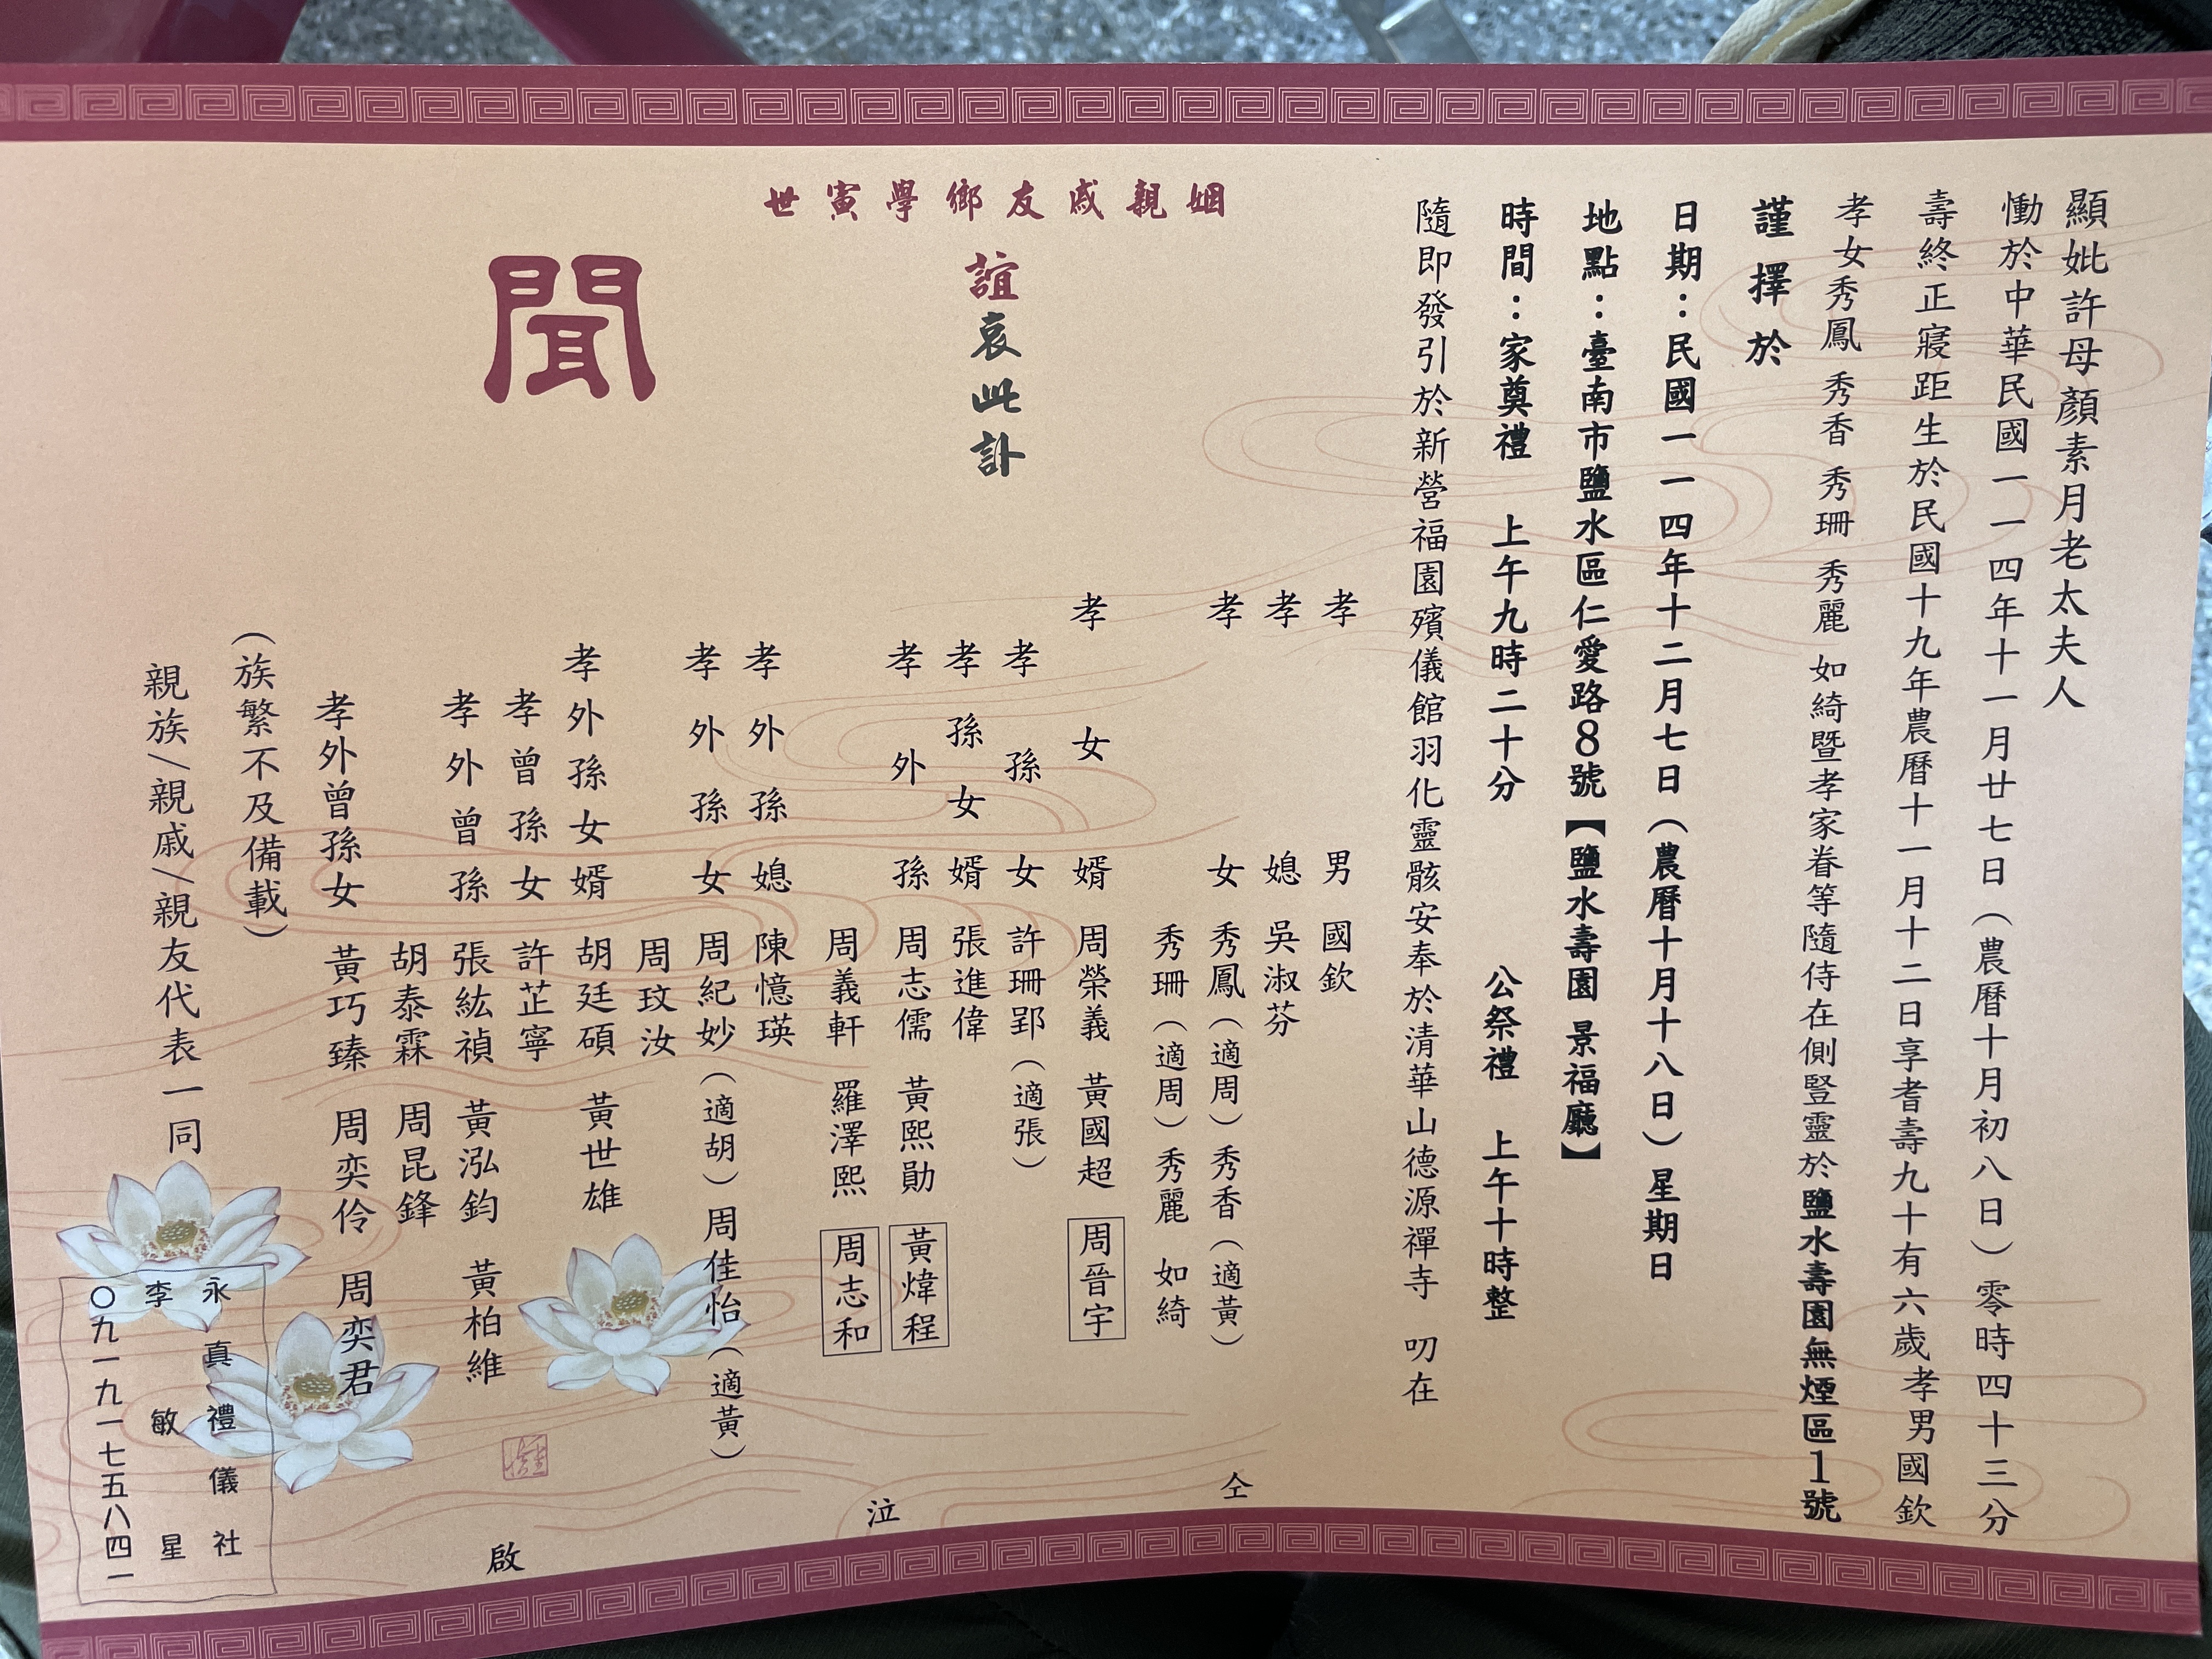 顯妣許母顏素月老太夫人
慟於中華民國一一四年十一月廿七日（農曆十月初八日）零時四十三分
壽終正寢距生於民國十九年農曆十一月十二日享耆壽九十有六歲孝男國欽
孝女秀鳳 秀香 秀珊 秀麗 如綺暨孝家眷等隨侍在側豎靈於鹽水壽園無煙區1號
謹擇於
日期：民國一一四年十二月七日（農曆十月十八日）星期日
地點：臺南市鹽水區仁愛路8號【鹽水壽園 景福廳】
時間：家奠禮 上午九時二十分 公祭禮 上午十時整
隨即發引於新營福園殯儀館羽化靈骸安奉於清華山德源禪寺 叨在
姻親戚友鄉學寅世
誼哀此訃
聞
孝男 國欽
孝媳 吳淑芬
孝女 秀鳳（適周）秀香（適黃）
秀珊（適周）秀麗 如綺
孝女婿 周榮義 黃國超 周晉宇
孝孫女 許珊郢（適張）
孝孫女婿 張進偉
孝外孫 周志儒 黃熙勛 黃煒程
周義軒 羅澤熙 周志和
孝外孫媳 陳憶瑛
孝外孫女 周紀妙（適胡）周佳怡（適黃）
周玟汝
孝外孫女婿 胡廷碩 黃世雄
孝曾孫女 許芷寧
孝外曾孫 張紘禎 黃泓鈞 黃柏維
胡泰霖 周昆鋒
孝外曾孫女 黃巧臻 周奕伶 周奕君
（族繁不及備載）
親族/親戚/親友代表一同
仝
泣
啟
永真禮儀社
李敏星
〇九一九一七五八四一